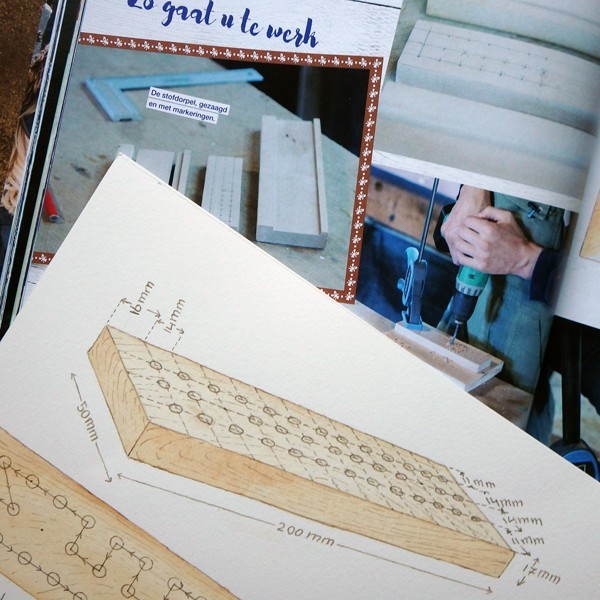 Zo gaat u te werk
De stofdorpel, gezaagd
en met markeringen.
16mm
14mm
50mm
200 mm
11mm
14mm
14mm
11mm
17mm